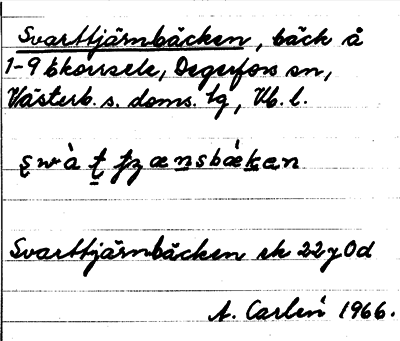 Svarttjärnbäcken, bäck å
1-9 bkorssele, Degerfors sn,
Västerb. s. doms. lg, Vb. l.
Svarttjärnbäcken ek 22 y 0d
A. Carlén 1966.